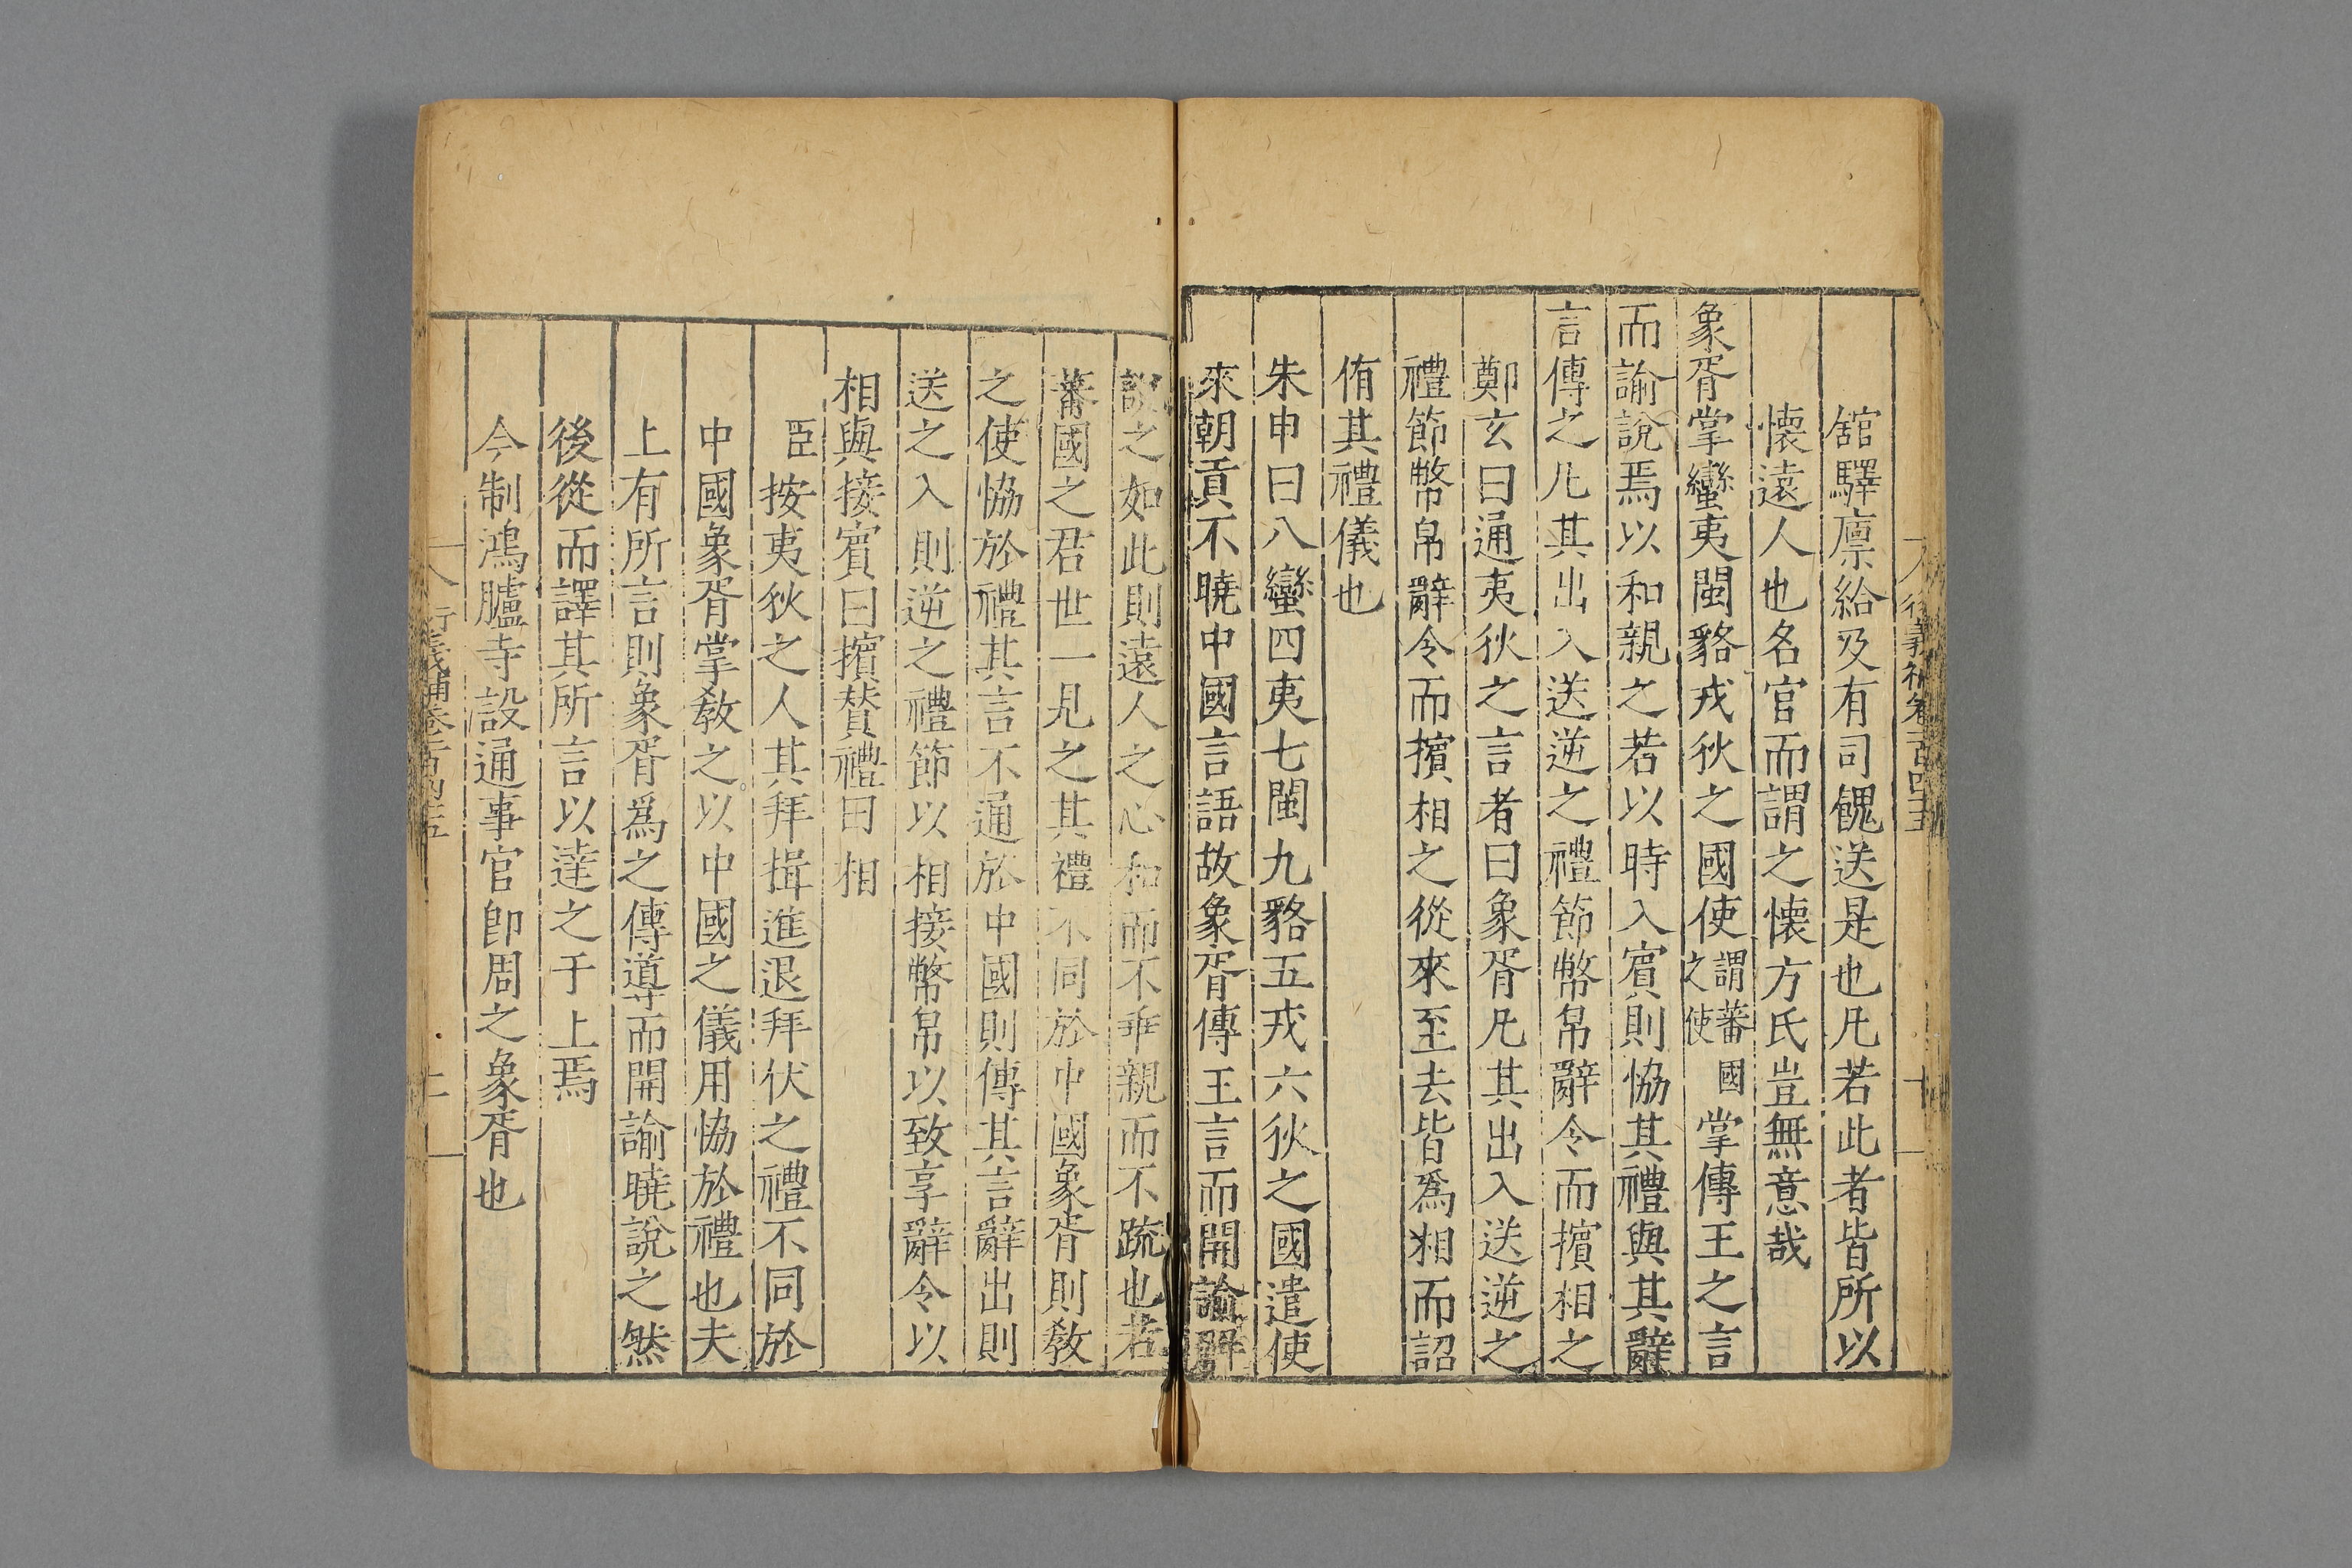 舘驛廪給及有司餽送是也凡若此者皆所以
懐遠人也名官而謂之懐方氏豈無意哉
象胥掌蠻夷閩貉戎狄之國使謂蕃國之使掌傳王之言
而諭說焉以和親之若以時入賓則恊其禮與其辭
言傳之凡其出入送逆之禮節幣帛辭令而擯相之
鄭玄曰通夷狄之言者曰象胥凡其出入送逆之
禮節幣帛辭令而擯相之從來至去皆爲相而詔
侑其禮儀也
朱申曰八蠻四夷七閩九貉五戎六狄之國遣使
來朝貢不曉中國言語故象胥傳王言而開諭
說之如此則遠人之心和而不乖親而不䟽也若
蕃國之君世一見之其禮不同於中國象胥則敎
之使恊於禮其言不通於中國則傳其言辭出則
送之入則逆之禮節以相接幣帛以致享辭令以
相與接賓曰擯賛禮曰相
臣按夷狄之人其拜揖進退拜伏之禮不同於
中國象胥掌敎之以中國之儀用恊於禮也夫
上有所言則象胥爲之傳導而開諭曉說之然
後從而譯其所言以達之于上焉
今制鴻臚寺設通事官卽周之象胥也